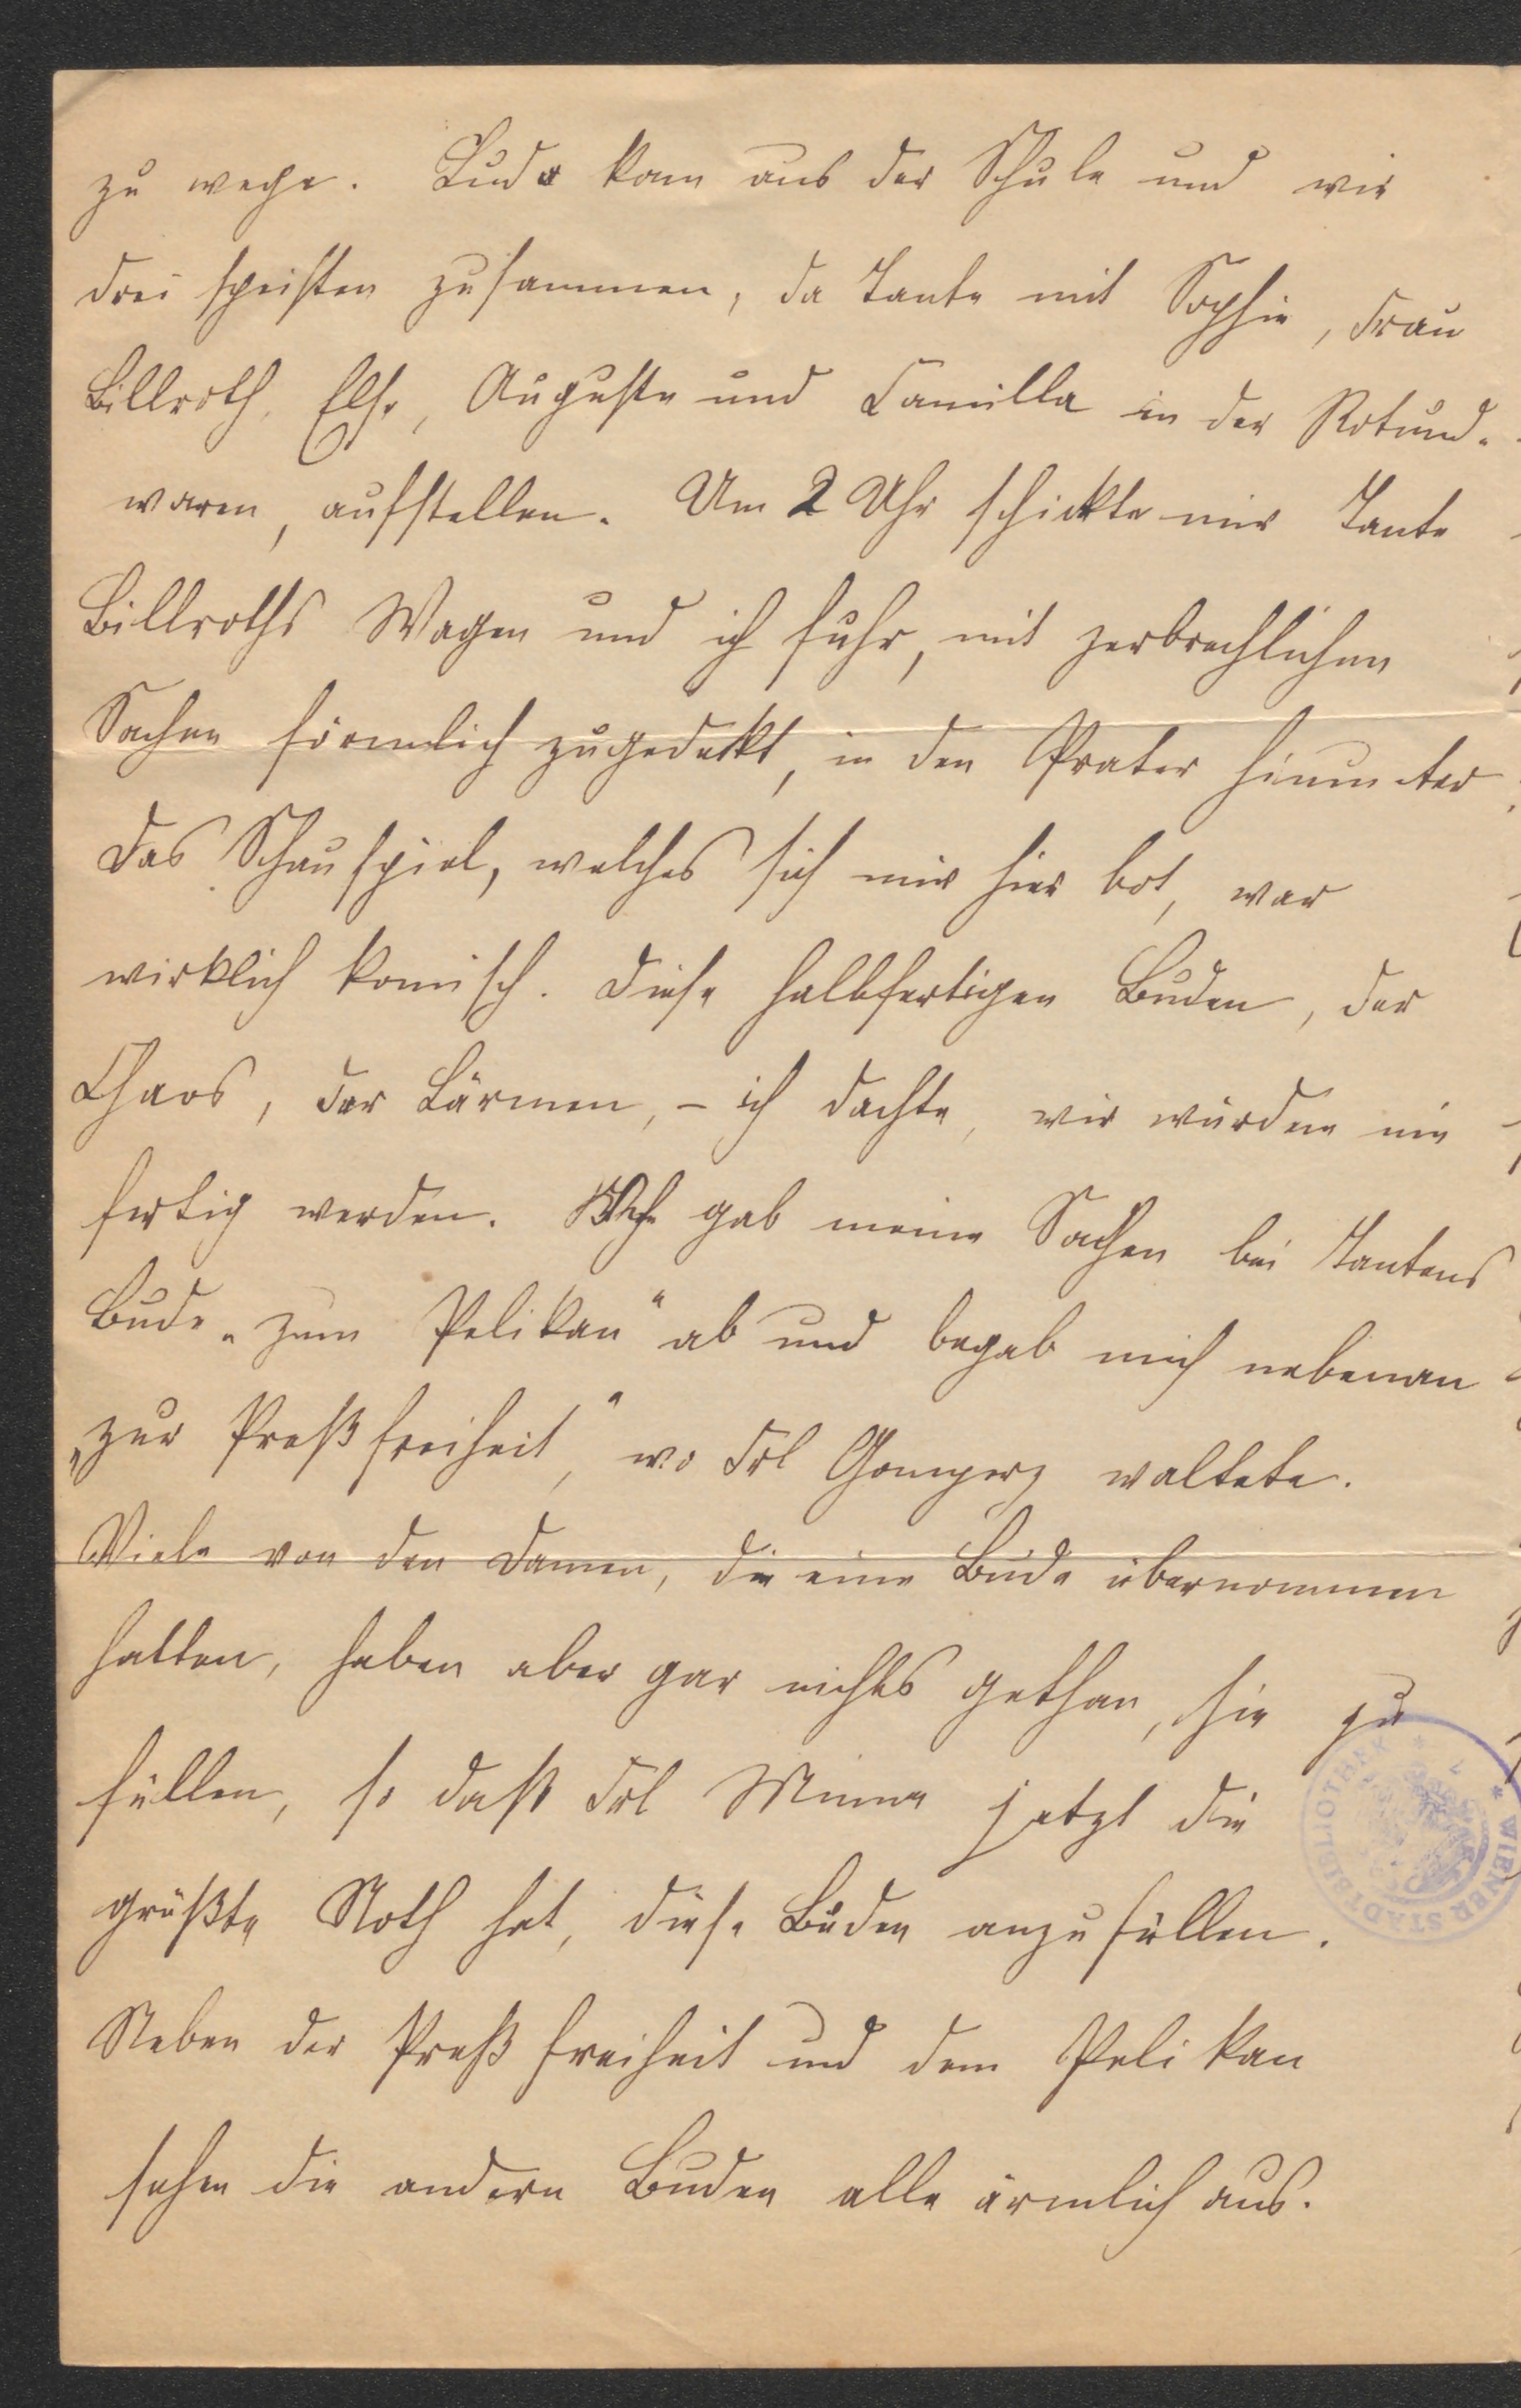 zu wege. Ludo kam aus der Schule und wir
drei speisten zusammen, da Tante mit Sophie, Frau
Billroth, Else, Auguste und Camilla in der Rotunde
waren, aufstellen. Um 2 Uhr schickte mir Tante
Billroths Wagen und ich fuhr, mit zerbrechlichen
Sachen förmlich zugedeckt, in den Prater hinunter.
Das Schauspiel, welches sich mir hier bot, war
wirklich komisch. Diese halbfertigen Buden, der
Chaos, der Lärmen, – ich dachte, wir würden nie
fertig werden. Ich gab meine Sachen bei Tantens
Bude „zum Pelikan“ ab und begab mich nebenan
„zur Preßfreiheit,“ wo Frl Gomperz waltete.
Viele von den Damen, die eine Bude übernommen
hatten, haben aber gar nichts gethan, sie zu
füllen, so daß Frl Minna jetzt die
größte Noth hat, diese Buden anzufüllen.
Neben der Preßfreiheit und dem Pelikan
sehen die andern Buden alle ärmlich aus.
WIENER STADTBIBLIOTHEK